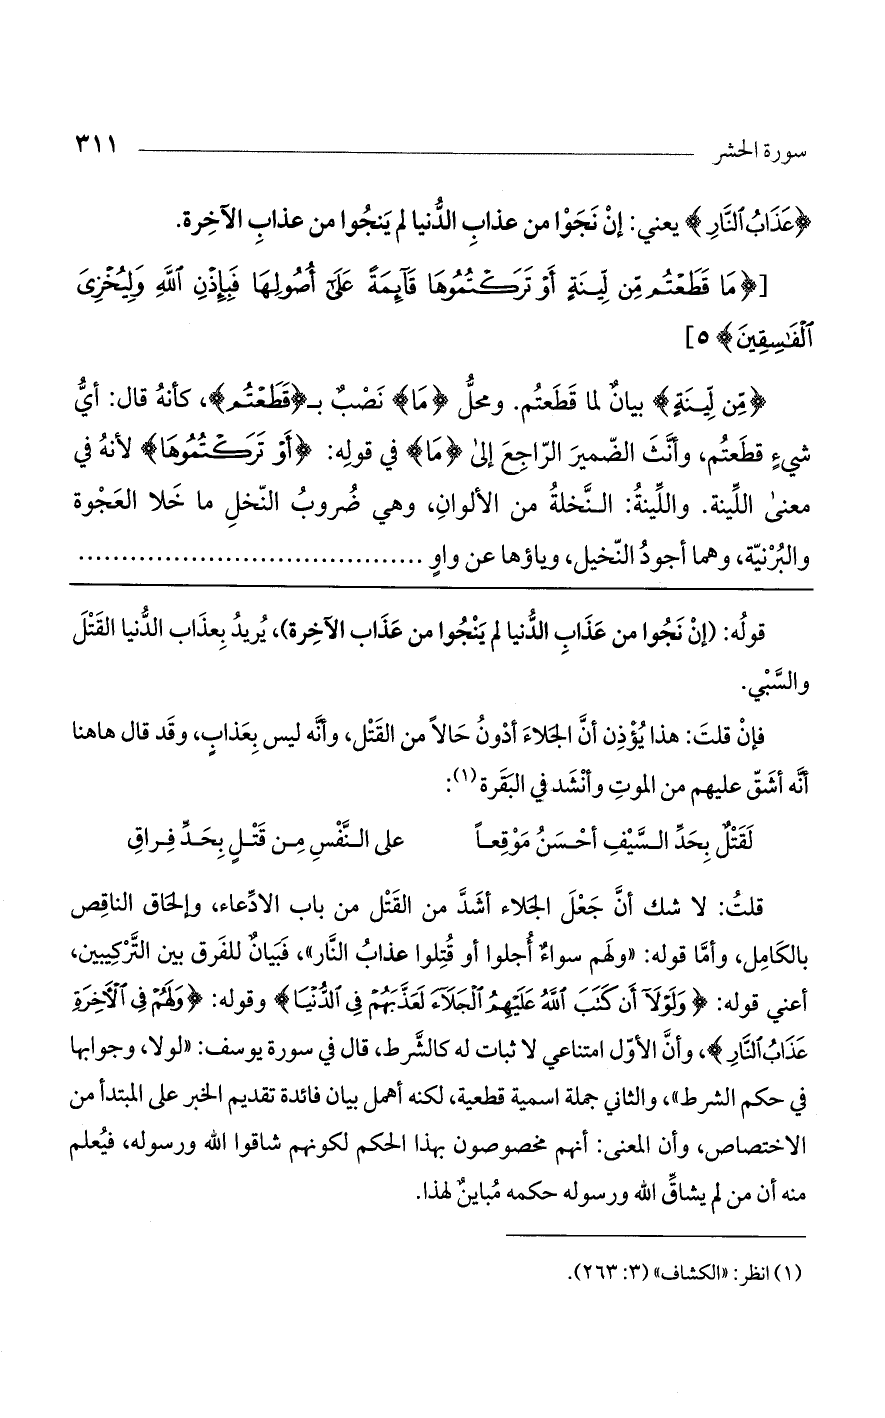 سورة الحشر ٣١١
﴿عَذَابُ ٱلنَّارِ﴾ يعني: إنْ نَجَوْا من عذابِ الدُّنيا لم يَنجُوا من عذابِ الآخِرة.
[﴿مَا قَطَعْتُم مِّن لِّينَةٍ أَوْ تَرَكْتُمُوهَا قَآئِمَةً عَلَىٰٓ أُصُولِهَا فَبِإِذْنِ ٱللَّهِ وَلِيُخْزِىَ
ٱلْفَٰسِقِينَ﴾ ٥]
﴿مِّن لِّينَةٍ﴾ بيانٌ لما قَطَعتُم. ومحلُّ ﴿مَا﴾ نَصْبٌ بـ﴿قَطَعْتُم﴾، كأنهُ قال: أيُّ
شيءٍ قطَعتُم، وأنَّثَ الضّميرَ الرّاجِعَ إلىٰ ﴿مَا﴾ في قولِه: ﴿أَوْ تَرَكْتُمُوهَا﴾ لأنهُ في
معنىٰ اللِّينة. واللِّينةُ: النَّخلةُ من الألوانِ، وهي ضُروبُ النّخلِ ما خَلا العَجْوة
والبُرْنيّة، وهما أجودُ النّخيل، وياؤها عن واوٍ ......................................
قولُه: (إنْ نَجُوا من عَذَابِ الدُّنيا لم يَنْجُوا من عَذَاب الآخِرة)، يُريدُ بِعذَاب الدُّنيا القَتْلَ
والسَّبْي.
فإنْ قلتَ: هذا يُؤْذِن أنَّ الجَلاءَ أدْونُ حَالاً من القَتْل، وأنَّه ليس بِعَذابٍ، وقَد قال هاهنا
أنَّه أشَقّ عليهم من الموتِ وأنْشَد في البَقَرة(١):
لَقَتْلٌ بِحَدِّ السَّيْفِ أحْسَنُ مَوْقِعاً على النَّفْسِ مِن قَتْلٍ بِحَدِّ فِراقِ
قلتُ: لا شك أنَّ جَعْلَ الجَلاء أشَدَّ من القَتْل من باب الادِّعاء، وإلحاق الناقِص
بالكَامِل، وأمَّا قوله: «ولَهم سواءٌ أُجلوا أو قُتِلوا عذابُ النَّار»، فَبَيانٌ للفَرق بين التَّرْكِيبين،
أعني قوله: ﴿وَلَوْلَآ أَن كَتَبَ ٱللَّهُ عَلَيْهِمُ ٱلْجَلَآءَ لَعَذَّبَهُمْ فِى ٱلدُّنْيَا﴾ وقوله: ﴿وَلَهُمْ فِى ٱلْآخِرَةِ
عَذَابُ ٱلنَّارِ﴾، وأنَّ الأوّل امتناعي لا ثبات له كالشَّرط، قال في سورة يوسف: «لولا، وجوابها
في حكم الشرط»، والثاني جملة اسمية قطعية، لكنه أهمل بيان فائدة تقديم الخبر على المبتدأ من
الاختصاص، وأن المعنى: أنهم مخصوصون بهذا الحكم لكونهم شاقوا الله ورسوله، فيُعلم
منه أن من لم يشاقِّ الله ورسوله حكمه مُباينٌ لهذا.
(١) انظر: «الكشاف» (٣: ٢٦٣).